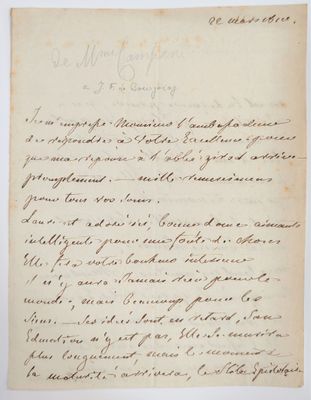 22 mars 1810.
de Mme Campan
à J. F. de Bourgoing
Je m'empresse Monsieur l'ambassadeur
de repondre à Votre Excellence pour
que ma reponse à l'abbé arrive
promptement. — mille remercimens
pour tous vos soins.
Laure est adorée ici, bonne douce aimante
intelligente pour une foule de choses
Elle fera votre bonheur interieur
il n'y aura jamais rien pour le
monde, mais beaucoup pour les
siens. — Ses idées sont en retard, son
Education n'y est pas, Elle se murira
plus longuement, mais le moment
de maturité arrivera, le Stole Epistolaire